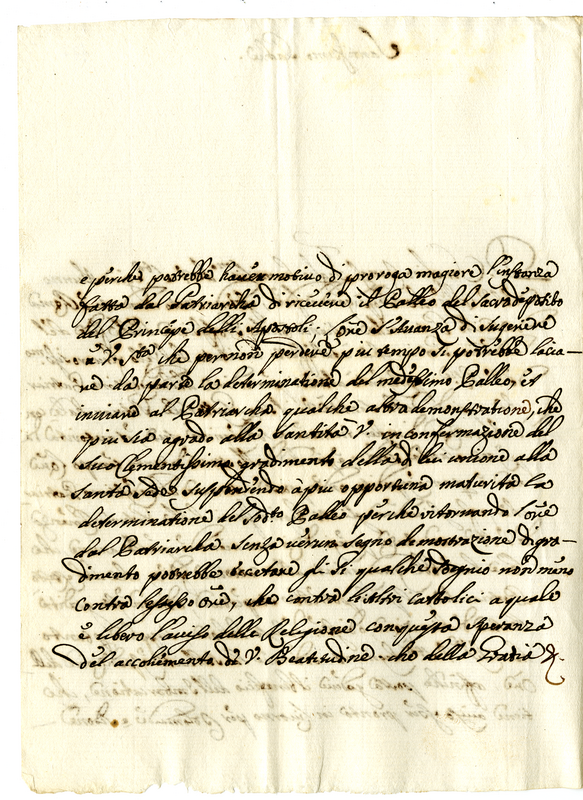 e perche potrebbe haver motivo di proroga magiore l'instanza
fatta dal Patriarcha di ricevere il Palleo del Sacro deposito
del Principe delli Apostoli. l'Ore s'avanza di sugerere
a V. Sta che per non perdere piu tempo si potrebbe lascia-
re da parte la determinatione del medesimo Palleo, et
inviare al Patriarcha qualche altra demonstratione, che
piu sia agrado alla Santita V. in confermazione del
suo Clementissimo gradimento della di lui unione alla
Santa Sede, suspendendo à piu opportuna maturita la
determinatione del sodto Palleo perche ritornando l'Ore
dal Patriarcha senza verun segno demostrazione di gra-
dimento potrebbe eccetare gli si qualche sdegnio non meno
contra l'istesso Ore, che contra li Altri Cattolici a quale
è libero l'avviso delle Religione con questa speranza
del accoglimento di V. Beatitudine che della Gratia &.